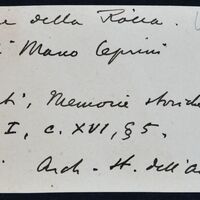 della Rocca.
Marco Ceprini
Memorie storiche
I, c. XVI, § 5.
Arch. St. dell'A